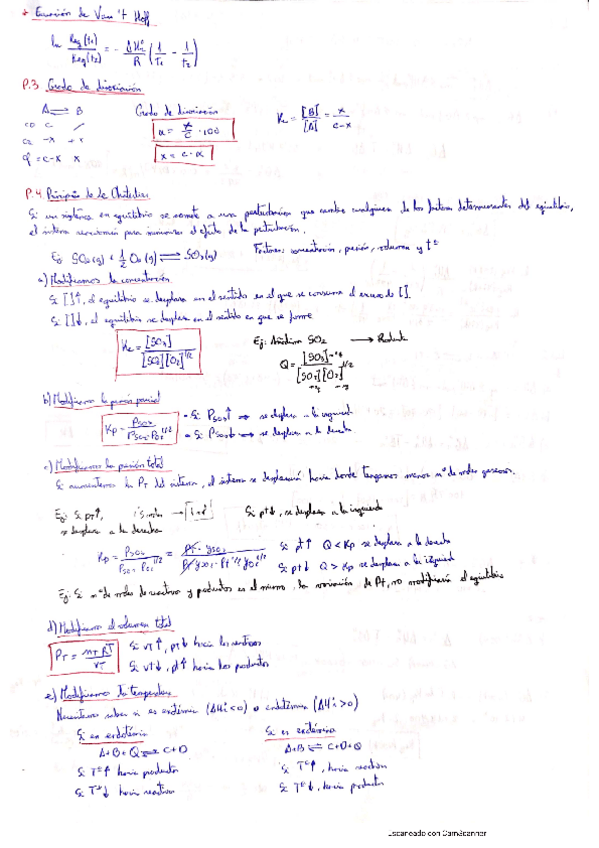 * Ecuación de Van't Hoff
ln Keq(t1)/Keq(t2) = - ΔHº/R (1/T1 - 1/T2)
P.3 Grado de disociación
A ⇌ B
Grado de disociación
Kc = [B]/[A] = x/c-x
c0 c /
-x +x
c-x x
α = x/c · 100
x = c · α
P.4 Principio de Le Chatelier
Si un sistema en equilibrio se somete a una perturbación que cambie cualquiera de los factores determinantes del equilibrio,
el sistema reacciona para minimizar el efecto de la perturbación.
Ej: SO2(g) + 1/2 O2(g) ⇌ SO3(g)
Factores: concentración, presión, volumen y tª
a) Modificamos la concentración
Si [ ]↑, el equilibrio se desplaza en el sentido en el que se consuma el exceso de [ ].
Si [ ]↓, el equilibrio se desplaza en el sentido en que se forme
Kc = [SO3]/[SO2][O2]^1/2
Ej: Añadimos SO2 →
Q = [SO3]/[SO2][O2]^1/2
b) Modificamos la presión parcial
Kp = PSO3/PSO2·PO2^1/2
- Si PSO3↑ ⇒ se desplaza a la izquierda
- Si PSO3↓ ⇒ se desplaza a la derecha
c) Modificamos la presión total
Si aumentamos la PT del sistema, el sistema se desplazará hacia donde tengamos menor nº de moles gaseosos.
Ej: Si PT↑,
se desplaza a la derecha
Si pt↓, se desplaza a la izquierda
Kp = PSO3/PSO2·PO2^1/2 = PT·ySO3/PT ySO2·PT^1/2 yO2^1/2
Si pt↑ Q < Kp se desplaza a la derecha
Si pt↓ Q > Kp se desplaza a la izquierda
Ej: Si nº de moles de reactivo y productos es el mismo, la variación de Pt, no modificaría el equilibrio
d) Modificamos el volumen total
PT = nT RT/VT
Si VT↑, pt↓ hacia los reactivos
Si Vt↓, pt↑ hacia los productos
e) Modificamos la temperatura
Necesitamos saber si es exotérmica (ΔHº<0) o endotérmica (ΔHº>0)
Si es endotérmica
A+B+Q ⇌ C+D
Si Tª↑ hacia productos
Si Tª↓ hacia reactivos
Si es exotérmica
A+B ⇌ C+D+Q
Si Tª↑, hacia reactivos
Si Tª↓, hacia productos
Escaneado con CamScanner